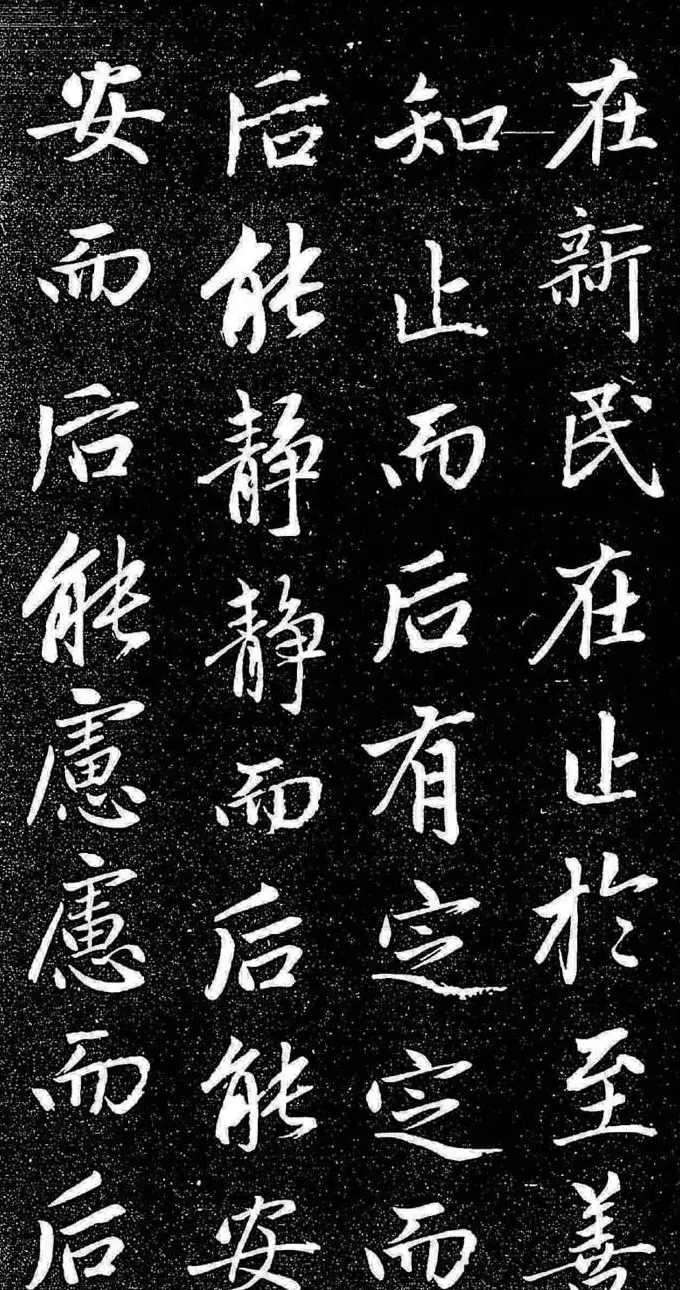 在新民在止於至善
知止而后有定定而
后能静静而后能安
安而后能慮慮而后